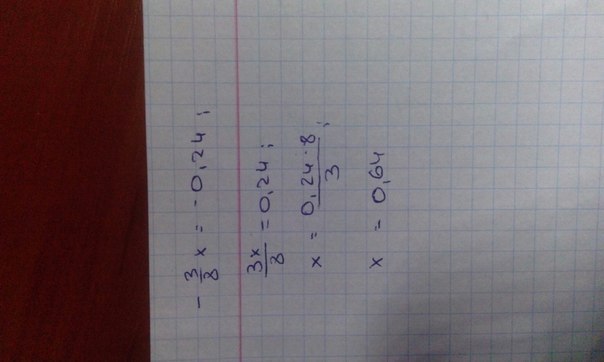 - 3/8 x = - 0,24 ;
3x/8 = 0,24 ;
x = 0,24 · 8/3 ;
x = 0,64